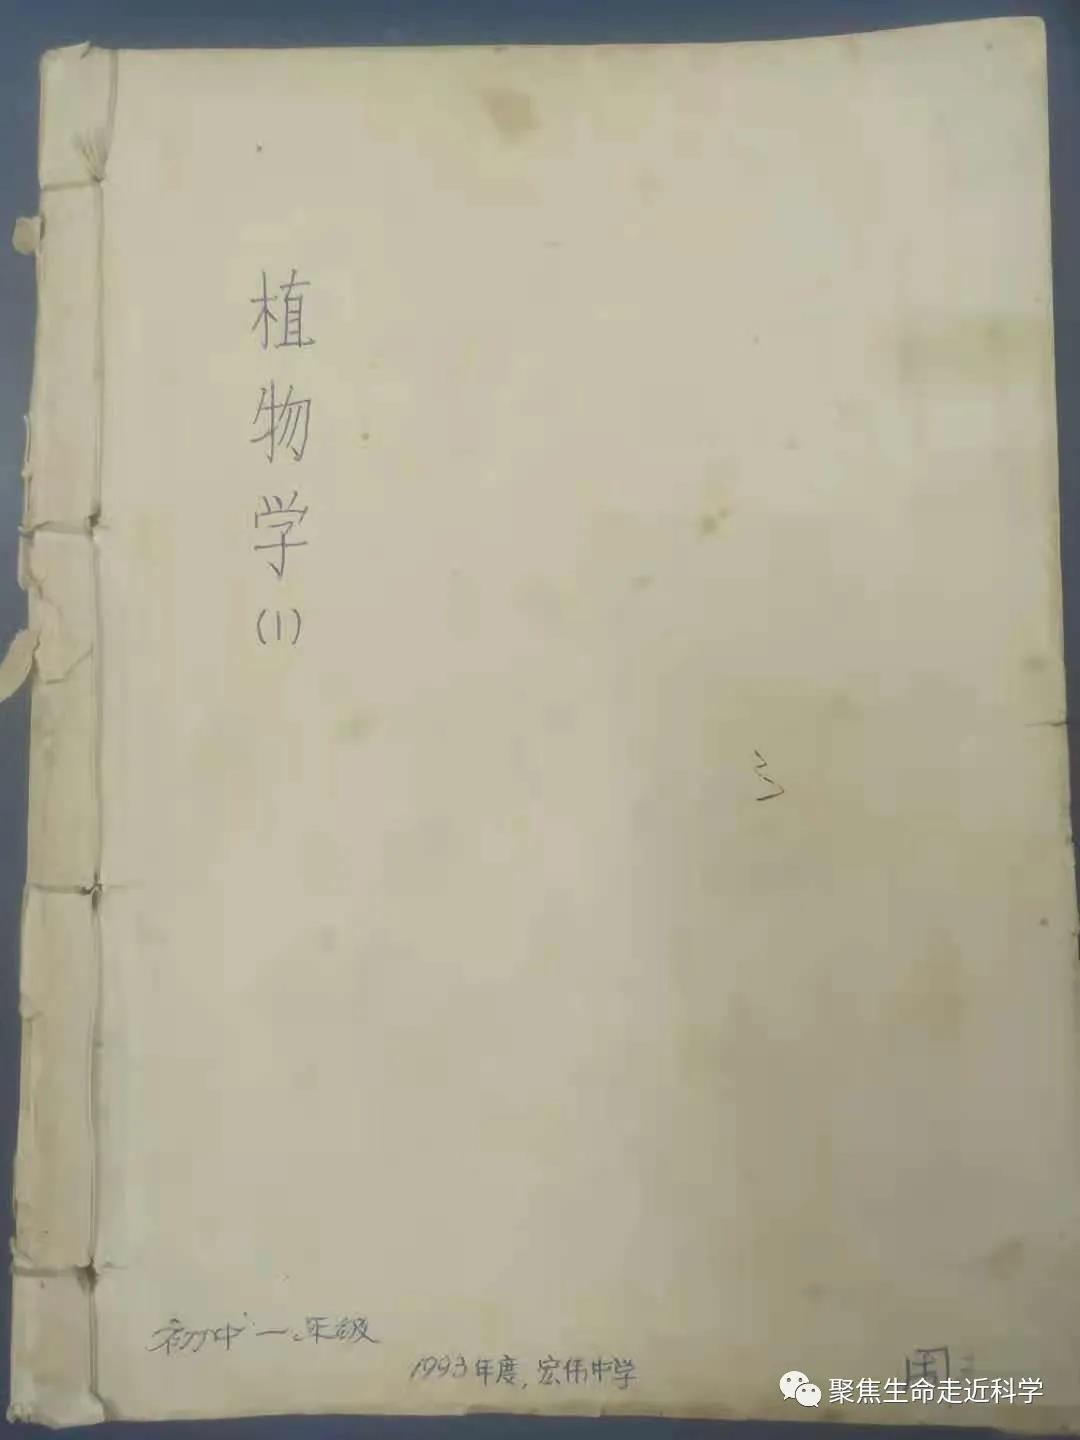 植物学
(1)
初中一年级
1993年度,宏伟中学
聚焦生命走近科学